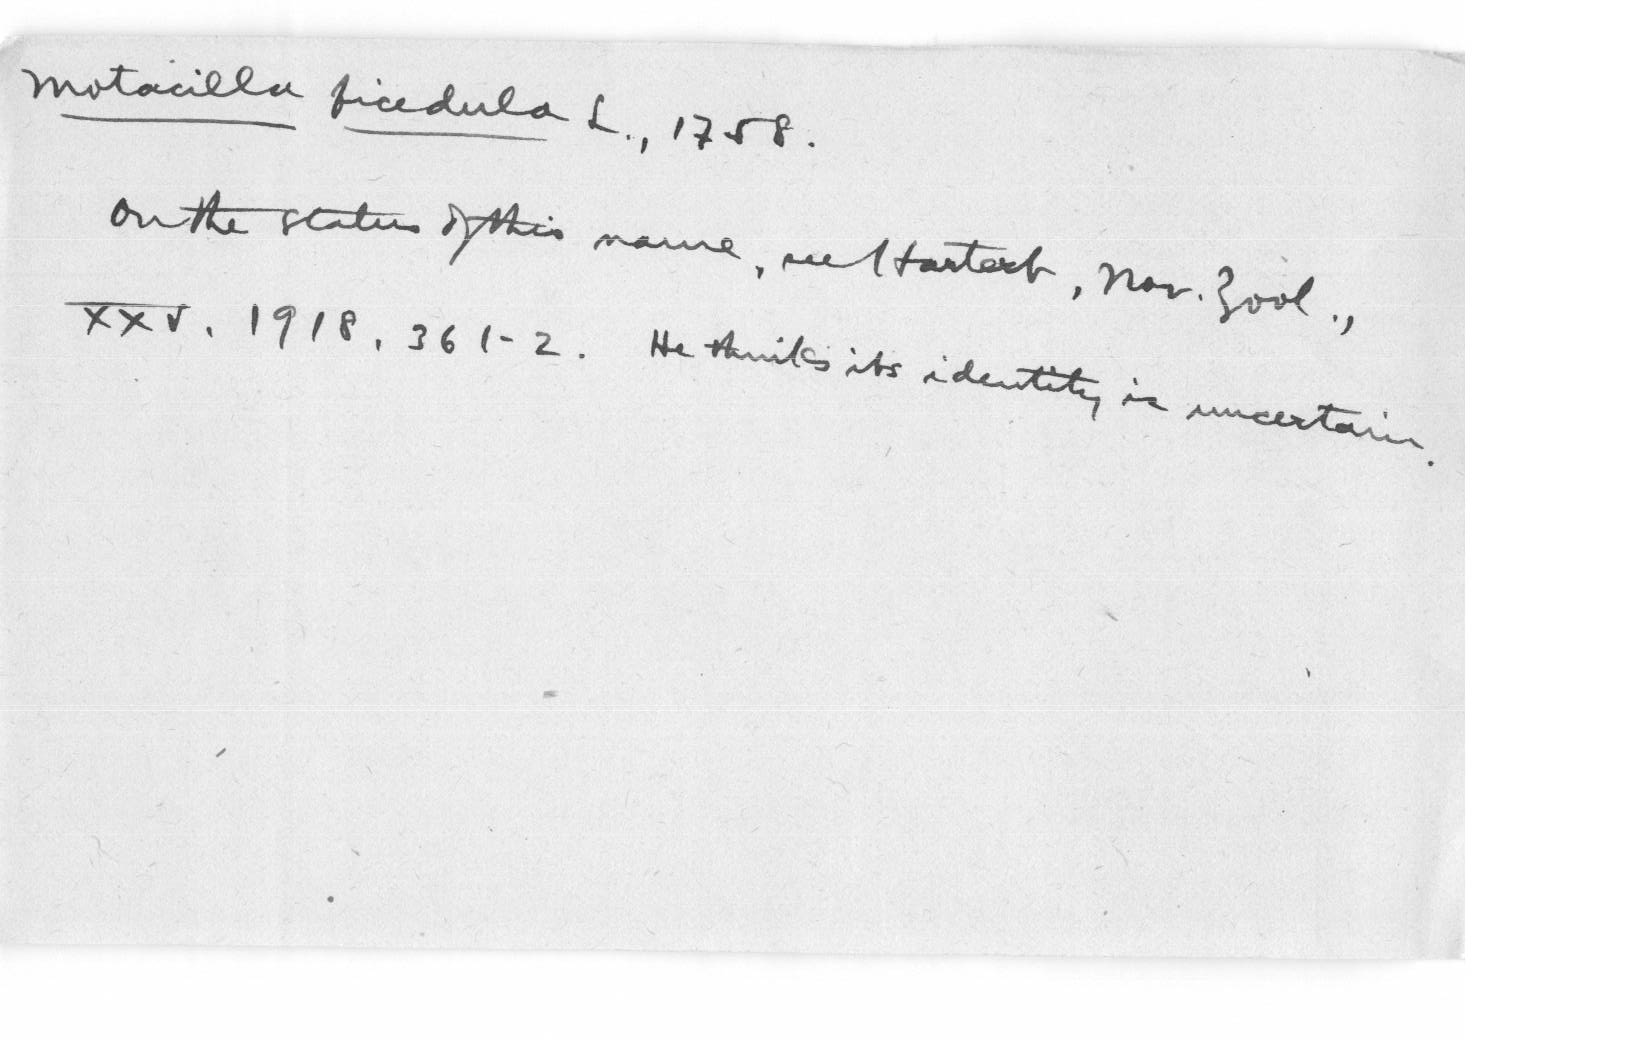 Motacilla ficedula L., 1758.
On the status of this name, see Hartert, Nov. Zool.,
XXV, 1918, 361-2. He thinks its identity is uncertain.